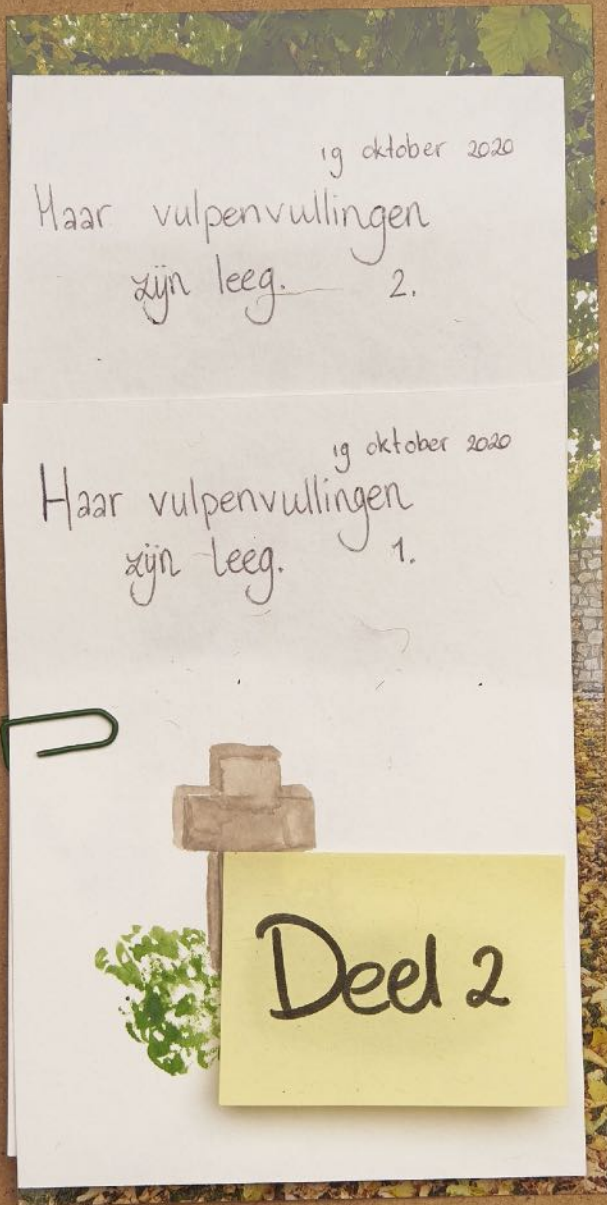 19 oktober 2020
Haar vulpenvullingen
zijn leeg. 2.
19 oktober 2020
Haar vulpenvullingen
zijn leeg. 1.
Deel 2